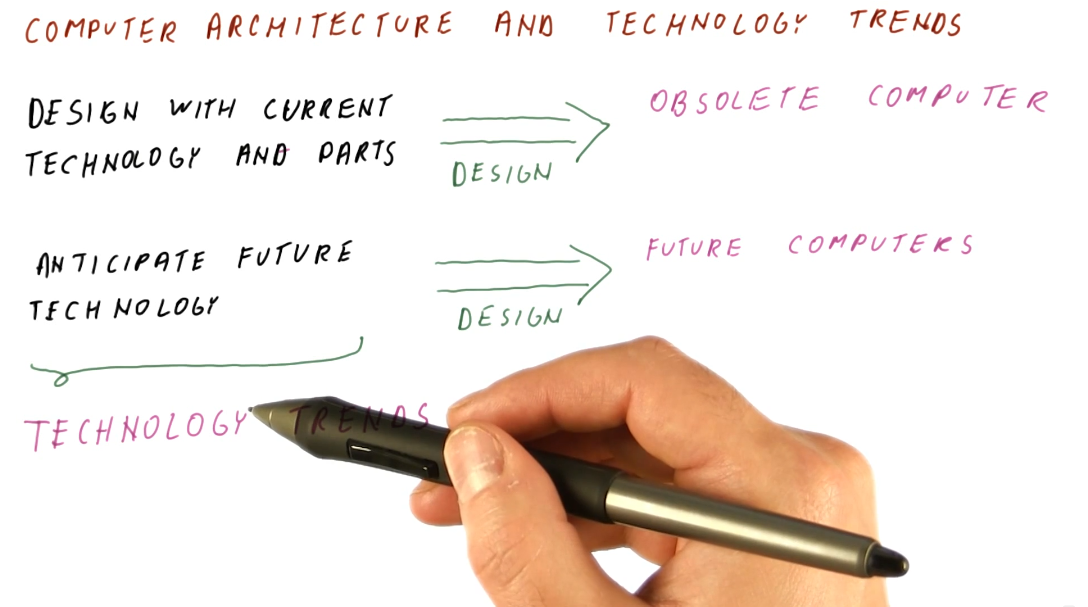 COMPUTER ARCHITECTURE AND TECHNOLOGY TRENDS
DESIGN WITH CURRENT
TECHNOLOGY AND PARTS
DESIGN
OBSOLETE COMPUTER
ANTICIPATE FUTURE
TECHNOLOGY
DESIGN
FUTURE COMPUTERS
TECHNOLOGY TRENDS